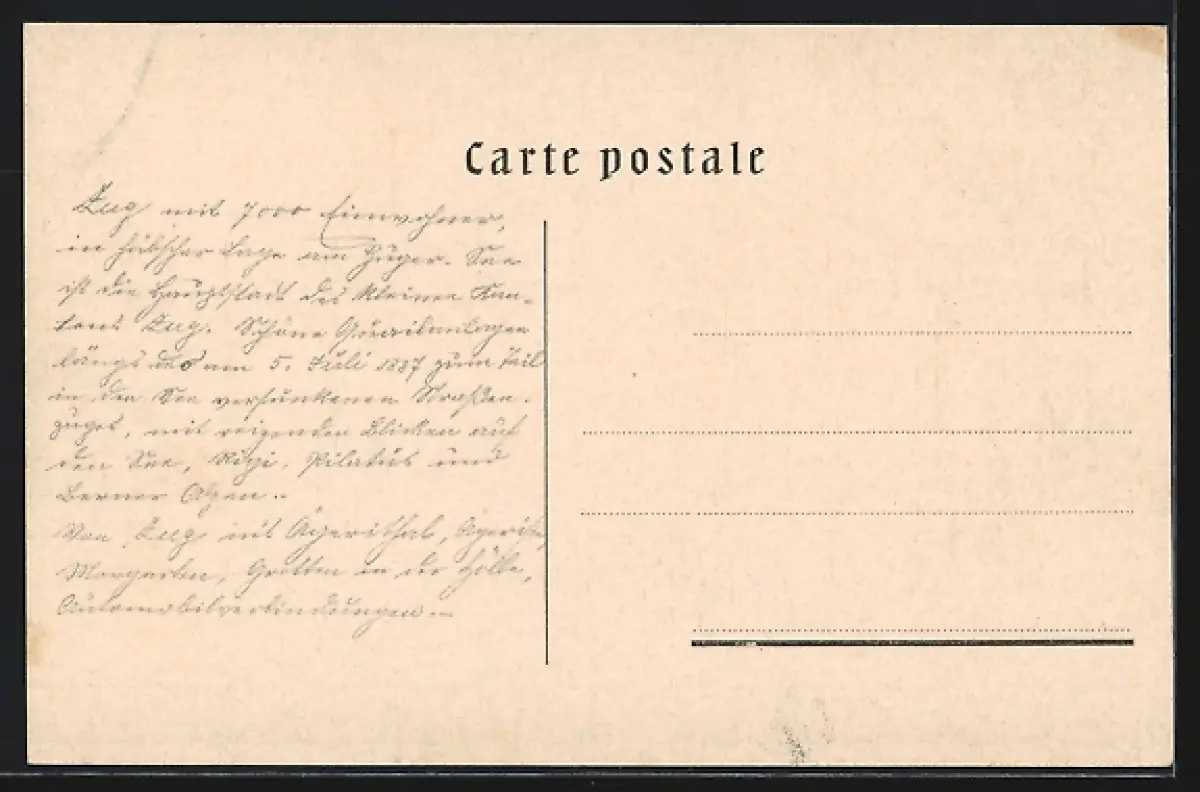 Carte postale
Zug mit 7000 Einwohner,
in hübscher Lage am Zuger-See
ist die Hauptstadt des kleinen Kan-
tons Zug. Schöne Quaianlagen
längs des am 5. Juli 1887 zum Teil
in den See versunkenen Straßen-
zuges, mit reizenden Blicken auf
den See, Rigi, Pilatus und
Berner Alpen.-
Von Zug ins Ägerithal, Ägerisee,
Morgarten, Grotten in der Hölle,
Automobilverbindungen.-